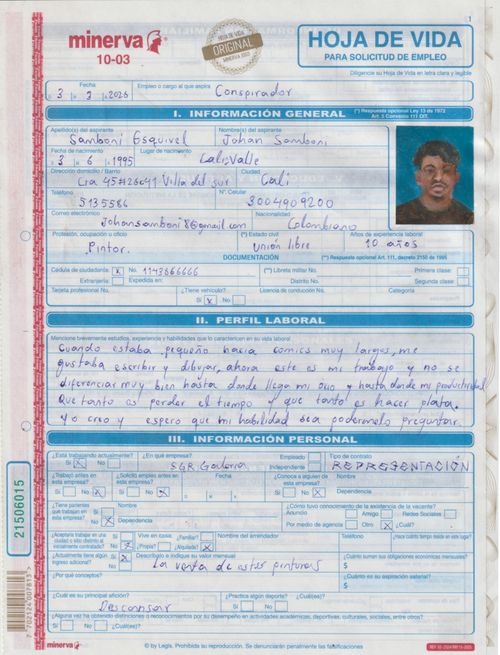 1
minerva
10-03
HOJA DE VIDA
ORIGINAL
MINERVA 1003
HOJA DE VIDA
PARA SOLICITUD DE EMPLEO
Diligencie su Hoja de Vida en letra clara y legible
Fecha
Empleo o cargo al que aspira
3 3 2026 Conspirador
I. INFORMACIÓN GENERAL
(*) Respuesta opcional Ley 13 de 1972
Art. 5 Convenios 111 OIT.
Apellido(s) del aspirante Nombre(s) del aspirante
Samboni Esquivel Johan Samboni
Fecha de nacimiento Lugar de nacimiento
3 6 1995 Cali, Valle
Dirección domicilio / Barrio Ciudad
Cra 45#26c41 Villa del sur Cali
Teléfono N°. Celular
5135586 3004909200
Correo electrónico Nacionalidad
johansamboni8@gmail.com Colombiano
Profesión, ocupación u oficio (*) Estado civil Años de experiencia laboral
Pintor. unión libre 10 años
DOCUMENTACIÓN (*) Respuesta opcional Art. 111, decreto 2150 de 1995
Cédula de ciudadanía: x No. 1143666666 (**) Libreta militar No. Primera clase:
Extranjería: Expedida en: Distrito No. Segunda clase:
Tarjeta profesional No. ¿Tiene vehículo? Licencia de conducción No. Categoría
Si x No
II. PERFIL LABORAL
Mencione brevemente estudios, experiencia y habilidades que lo caractericen en su vida laboral
Cuando estaba pequeño hacia comics muy largos, me
gustaba escribir y dibujar, ahora este es mi trabajo y no se
diferenciar muy bien hasta donde llega mi ocio y hasta donde mi productividad
Que tanto es perder el tiempo y que tanto es hacer plata.
Yo creo y espero que mi habilidad sea podermelo preguntar.
III. INFORMACIÓN PERSONAL
¿Está trabajando actualmente? ¿En qué empresa? Empleado Tipo de contrato
Si x No SGR Galería Independiente REPRESENTACIÓN
¿Trabajó antes en esta empresa? ¿Solicitó empleo antes en esta empresa? Fecha ¿Conoce a alguien de esta empresa? Nombre
Si No x Si No x Si No x Dependencia
¿Tiene parientes que trabajan en esta empresa? Nombre ¿Cómo tuvo conocimiento de la existencia de la vacante?
Si No x Dependencia Anuncio Amigo Redes Sociales
Por medio de agencia Otro x ¿Cuál?
¿Aceptaría trabajar en otra ciudad o sitio distinto al inicialmente contratado? Vive en casa: ¿Familiar? Nombre del arrendador Teléfono ¿Hace cuánto tiempo reside en este lugar?
Si No x ¿Propia? ¿Alquilada? x
¿Actualmente tiene algún ingreso adicional? Si x No Descríbalo e indique su valor mensual ¿Cuánto suman sus obligaciones económicas mensuales?
La venta de estas pinturas $
¿Por qué conceptos? ¿Cuánto es su aspiración salarial?
$
¿Cuál es su principal afición? ¿Practica algún deporte? ¿Cuál(es)?
Descansar Si No
¿Alguna vez ha obtenido distinciones o reconocimientos por su desempeño en actividades académicas, deportivas, culturales, sociales, entre otros?
Si No ¿Cuál(es)?
21506015
7702124007813
minerva
© by Legis. Prohibida su reproducción. Se denunciarán penalmente las falsificaciones